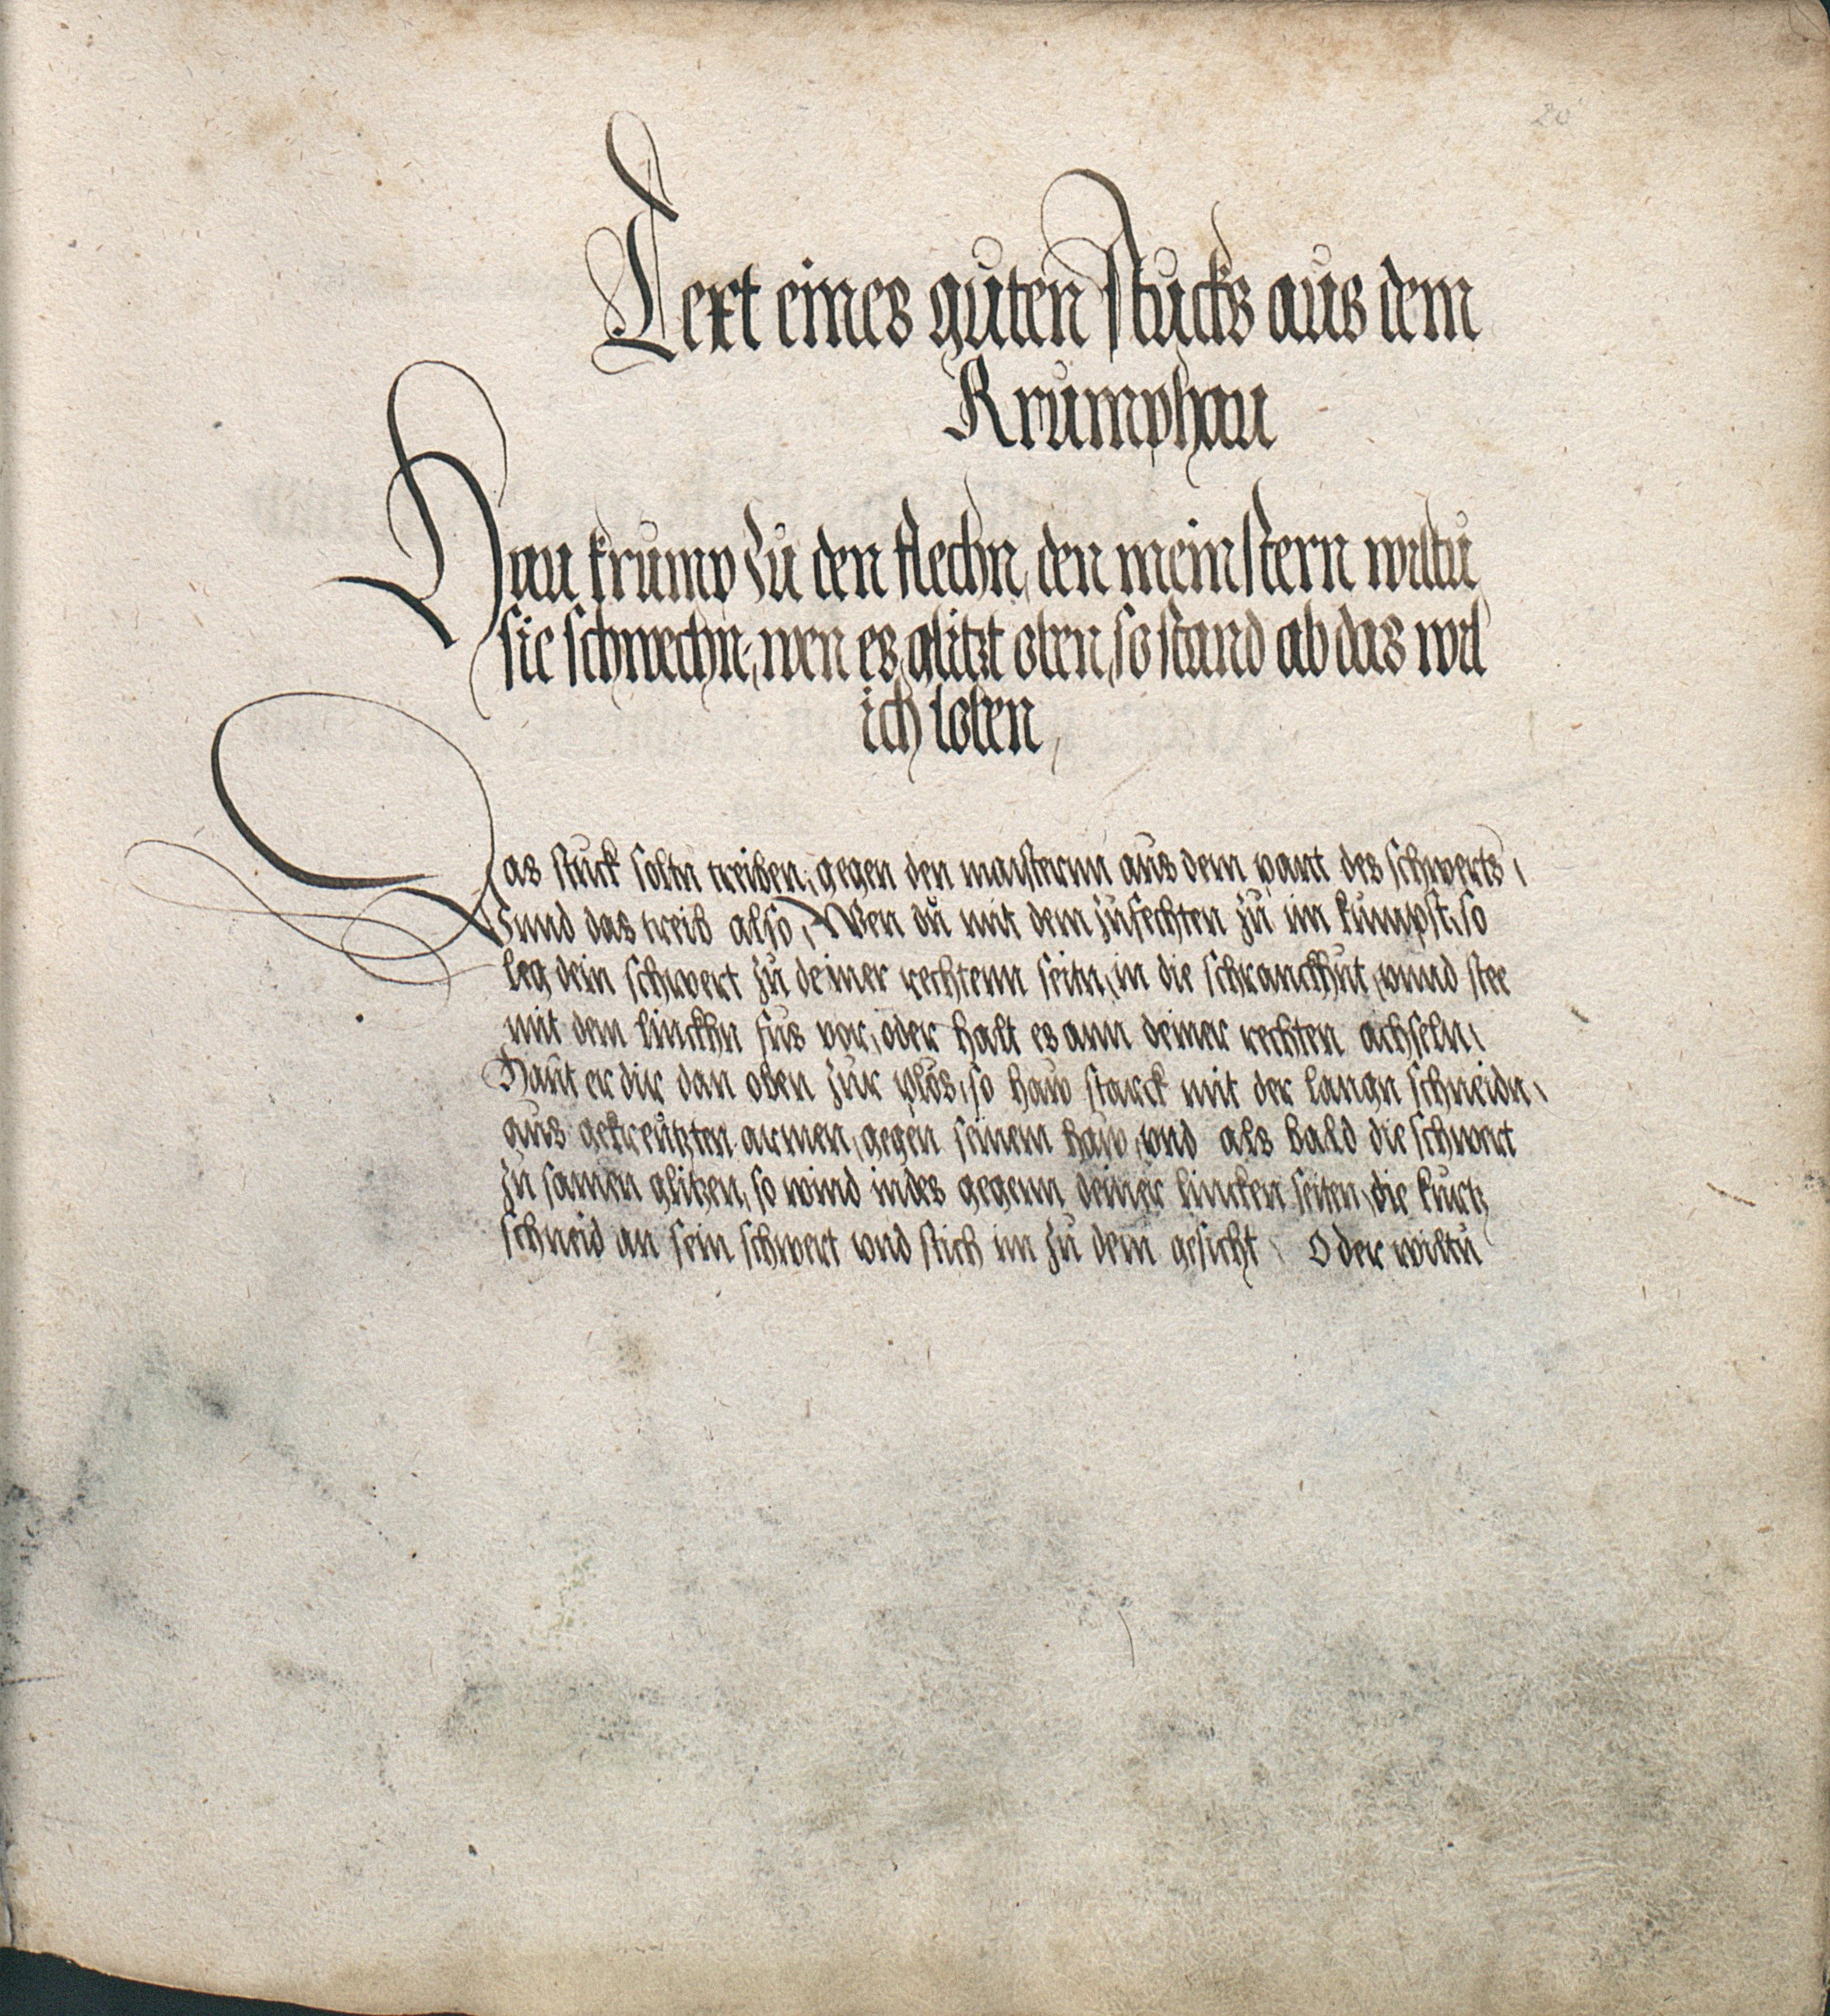 20
Text eines guten stucks aus dem
Krumphau
Hau krump zu den flechn, den meinstern wiltu
sie schwechn, wen es glitzt oben, so stand ab das wil
ich loben,
Das stuck soltu treiben, gegen den maisternn aus dem pant des schwerts,
vund das treib also, Wen du mit dem zufechten zu im kumpst, so
leg dein schwert zu deiner rechtenn seitn, in die schranckhut, vnnd stee
mit dem linckhn fus vor, oder halt es ann deiner rechten achseln,
Haut er dir dan oben zur plos, so haw starck mit der langn schneidn,
aus gekreutzten armen, gegen seinem haw, vnd als bald die schwert
zu samen glitzen, so wind indes gegenn deiner lincken seiten, die kurtz
schneid an sein schwert vnd stich im zu dem gesicht, Oder wiltu